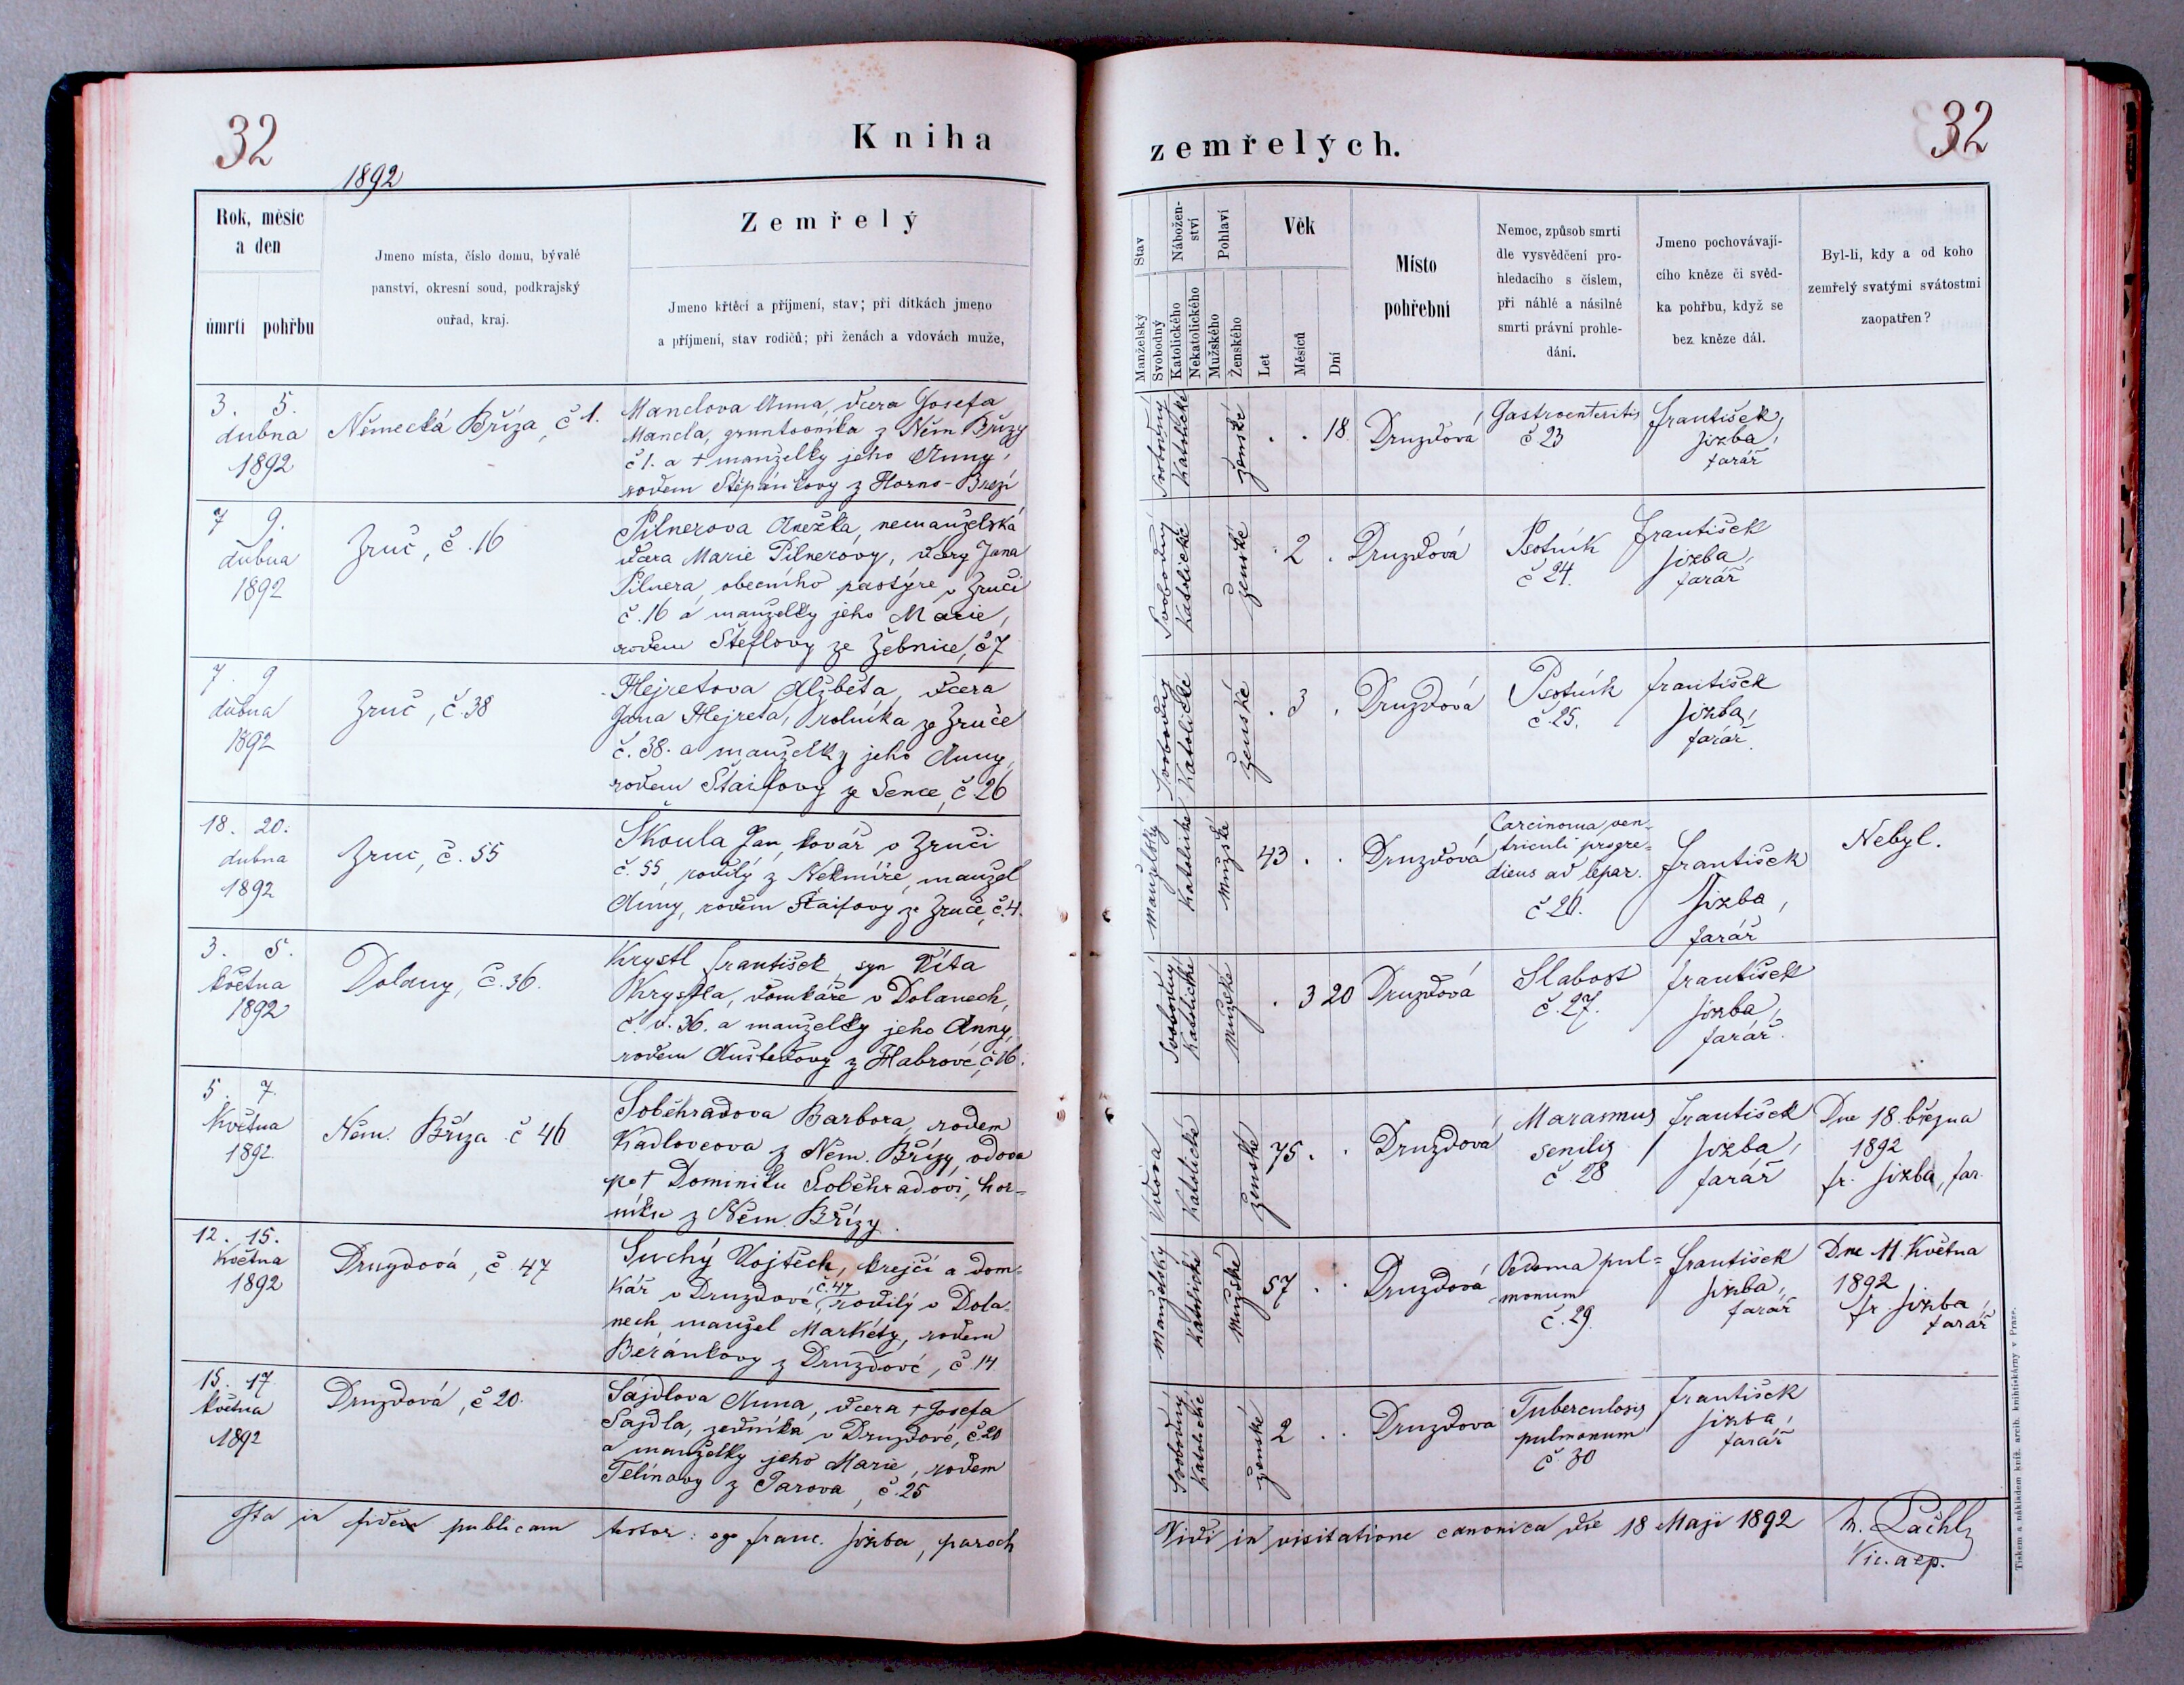 32
Kniha
1892
Rok, měsíc
a den
úmrtí pohřbu
Jmeno místa, číslo domu, bývalé
panství, okresní soud, podkrajský
ouřad, kraj.
Zemřelý
Jmeno křtěcí a příjmení, stav; při dítkách jmeno
a příjmení, stav rodičů; při ženách a vdovách muže,
3. 5.
dubna
1892
Německá Bříza, č 1.
Mandova Anna, dcera Josefa
Mandla, gruntovníka z Něm Břízy
č 1. a † manželky jeho Anny,
rodem Štěpánkovy z Horno-Břízi
7 9.
dubna
1892
Zruč, č. 16
Pilnerova Anežka, nemanželská
dcera Marie Pilnerovy, dcery Jana
Pilnera, obecního pastýře v Zruči
č. 16 a manželky jeho Marie,
rodem Šteflovy ze Žebnice, č 7
7. 9
dubna
1892
Zruč, č. 38
Hejretova Alžběta, dcera
Jana Hejreta, rolníka ze Zruče
č. 38. a manželky jeho Anny,
rodem Štaifovy ze Sence, č 26
18. 20.
dubna
1892
Zruč, č. 55
Škoula Jan, kovář v Zruči
č. 55, rodilý z Nekmíře, manžel
Anny, rodem Štaifovy ze Zruče, č. 4.
3. 5.
května
1892
Dolany, č. 36.
Krystl František, syn Víta
Krystla, domkáře v Dolanech,
č. d. 36. a manželky jeho Anny,
rodem z Habrové, č 16.
5. 7.
Května
1892.
Něm. Bříza č 46
Soběhradova Barbora, rodem
Kadlovcova z Něm. Břízy, vdova
po † Dominiku Soběhradovi, hor=
níku z Něm. Břízy.
12. 15.
Května
1892
Druzdová, č 47
Suchý Vojtěch, krejčí a dom=
kář v Druzdové č. 47, rodilý v Dola=
nech manžel Markéty, rodem
Beránkovy z Druzdové, č. 14
15. 17
května
1892
Druzdová, č 20.
Sajdlova Anna, dcera † Josefa
Sajdla, zedníka v Druzdové, č. 20
a manželky jeho Marie, rodem
Telínovy z Žarova, č. 25
Ita in fidem publicam testor: ego Franc. Jizba, paroch
zemřelých.
32
Stav
Manželský
Svobodný
Nábožen-
ství
Katolického
Nekatolického
Pohlaví
Mužského
Ženského
Věk
Let
Měsíců
Dní
Místo
pohřební
Nemoc, způsob smrti
dle vysvědčení pro-
hledacího s číslem,
při náhlé a násilné
smrti právní prohle-
dání.
Jmeno pochovávají-
cího kněze či svěd-
ka pohřbu, když se
bez kněze dál.
Byl-li, kdy a od koho
zemřelý svatými svátostmi
zaopatřen?
Svobodný Katolické ženské . . 18 Druzdová
Gastroenteritis
č 23
František
Jizba,
farář
Svobodný Katolické ženské . 2 . Druzdová
Psotník
č 24.
František
Jizba,
farář
Svobodný Katolické ženské . 3 . Druzdová
Psotník
č. 25.
František
Jizba,
farář.
Manželský Katolické Mužské 43 . . Druzdová
Carcinoma ven=
triculi progre=
diens ad hepar.
č 26.
František
Jizba,
farář
Nebyl.
Svobodný Katolické Mužské . 3 20 Druzdová
Slabost
č. 27.
František
Jizba,
farář.
Vdova Katolické ženské 75. . Druzdová
Marasmus
senilis
č. 28
František
Jizba,
farář
Dne 18. března
1892
Fr. Jizba, far.
Manželský Katolické Mužské 57 . . Druzdová
Oedema pul=
monum
č. 29.
František
Jizba,
farář
Dne 11 Května
1892
Fr. Jizba,
farář
Svobodný Katolické ženské 2 . . Druzdova
Tuberculosis
pulmonum
č. 30
František
Jizba,
farář
Vidi in visitatione canonica die 18 Maji 1892
Vic. aep.
Tiskem a nákladem kníž. arcib. knihtiskárny v Praze.